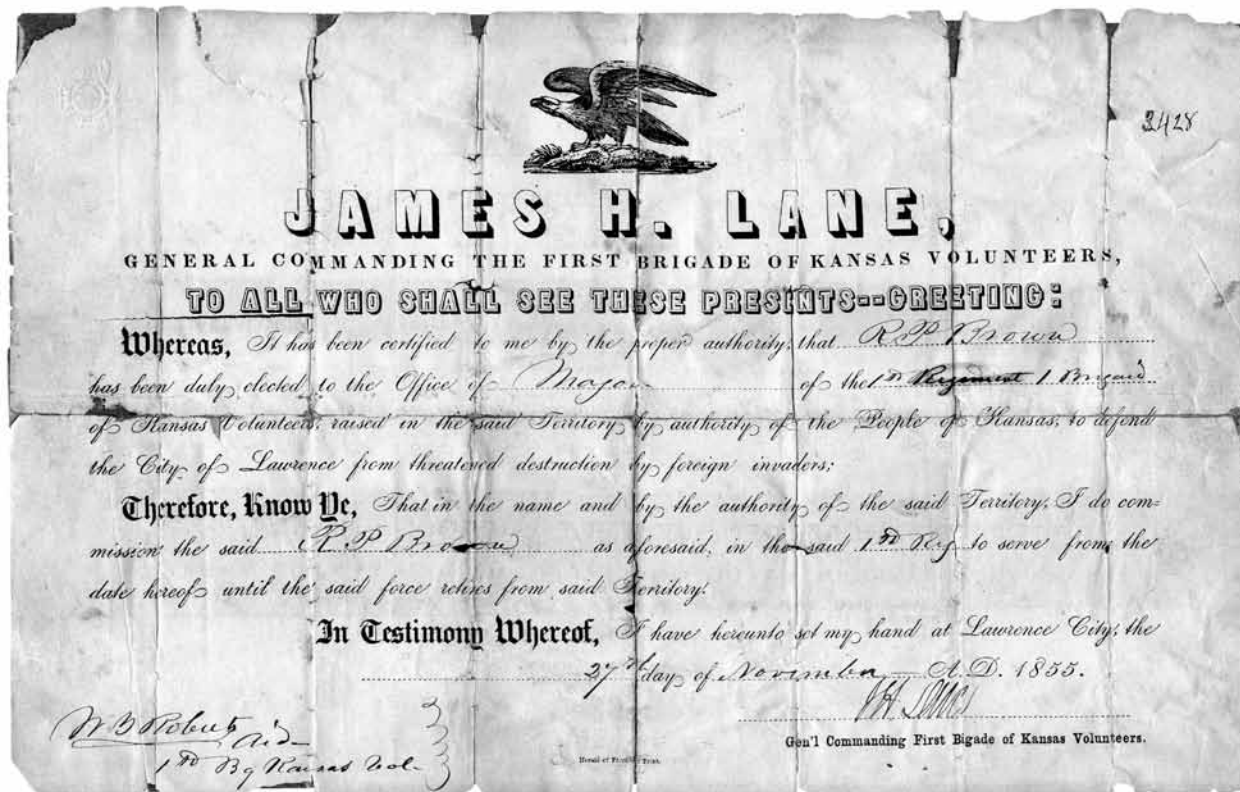 3428
JAMES H. LANE,
GENERAL COMMANDING THE FIRST BRIGADE OF KANSAS VOLUNTEERS,
TO ALL WHO SHALL SEE THESE PRESENTS--GREETING:
Whereas, It has been certified to me by the proper authority, that R P Brown
has been duly elected to the Office of Major of the 1st Regiment 1 Brigaid
of Kansas Volunteers, raised in the said Territory by authority of the People of Kansas, to defend
the City of Lawrence from threatened destruction by foreign invaders;
Therefore, Know Ye, That in the name and by the authority of the said Territory, I do com-
mission the said R P Brown as aforesaid, in the said 1st Reg to serve from the
date hereof until the said force retires from said Territory.
In Testimony Whereof, I have hereunto set my hand at Lawrence City, the
27th day of November A.D. 1855.
J H Lane
Gen'l Commanding First Bigade of Kansas Volunteers.
W B Roberts
Aid
1st Bg Kansas Vol.
Herald of Print.